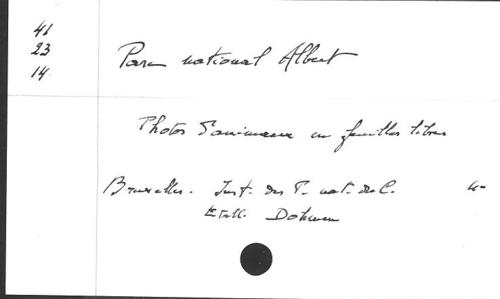 41
23
14
Parc national Albert
Photos d'animaux en feuilles libres
Bruxelles. Inst. des P. nat. du C. 4-
Etabl. Dohmen